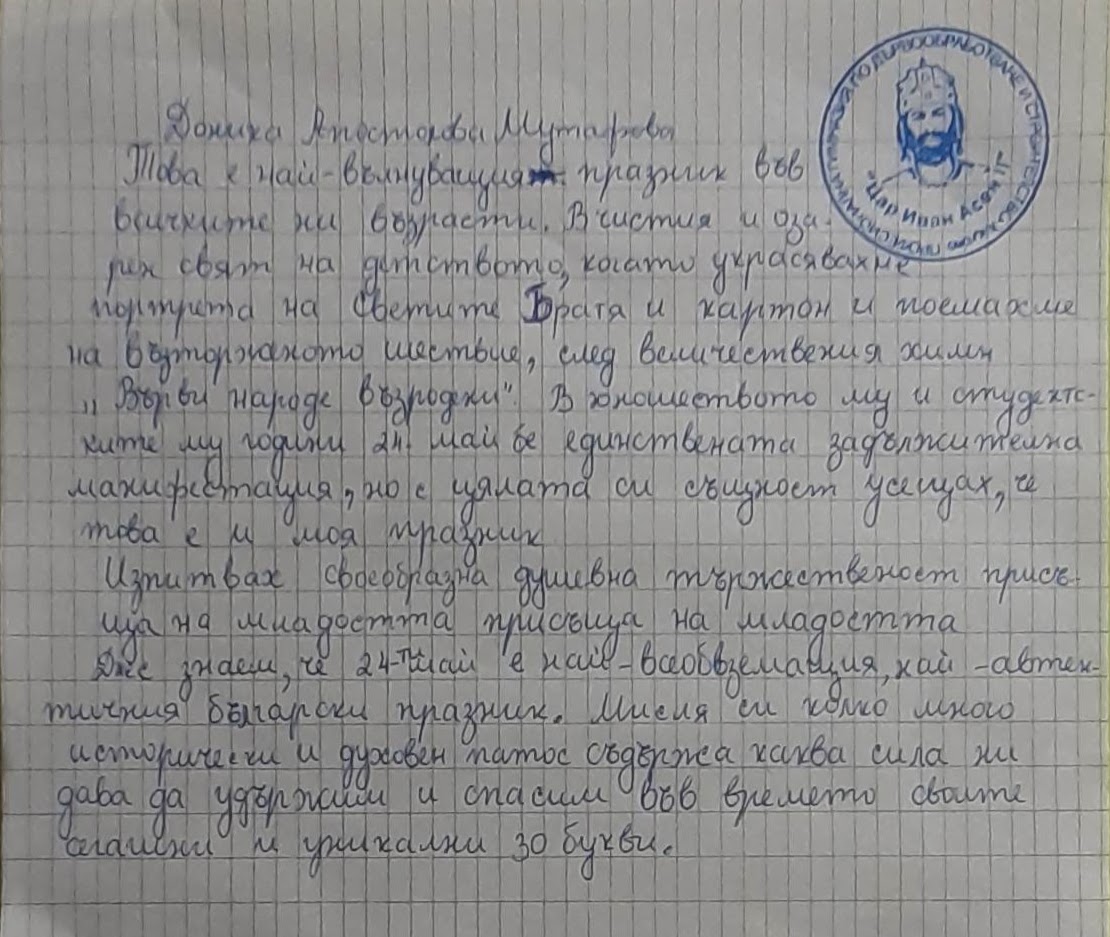 Доника Апостолова Мутафова
Това е най-вълнуващия празник във
всичките ни възрасти. В чистия и оза-
рен свят на детството, когато украсявахме
портрета на Светите Братя и картон и поемахме
на възторженото шествие, след величествения химн
„Върви народе възродени". В юношеството му и студентс-
ките му години 24 май бе единствената задължителна
манифестация, но с цялата си същност усещах, че
това е и моя празник
Изпитвах своеобразна душевна тържественост присъ-
ща на младостта присъща на младостта
знаем, че 24-ти май е най-всеобвземащия, най-автен-
тичния български празник. Мисля си колко много
исторически и духовен патос съдържа каква сила ни
дава да удържим и спасим във времето своите
и уникални 30 букви.
ПО ДЪРВООБРАБОТВАНЕ И СТРОИТЕЛСТВО
"Цар Иван Асен II"